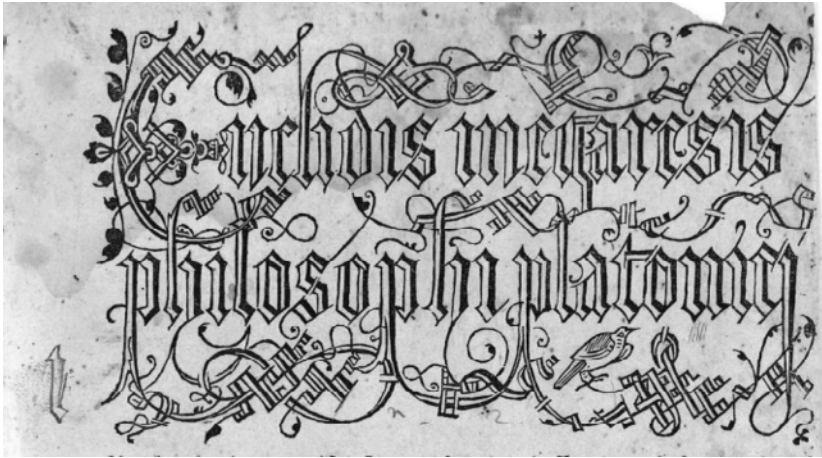 Euclidis megarēsis
philosophi platonicj